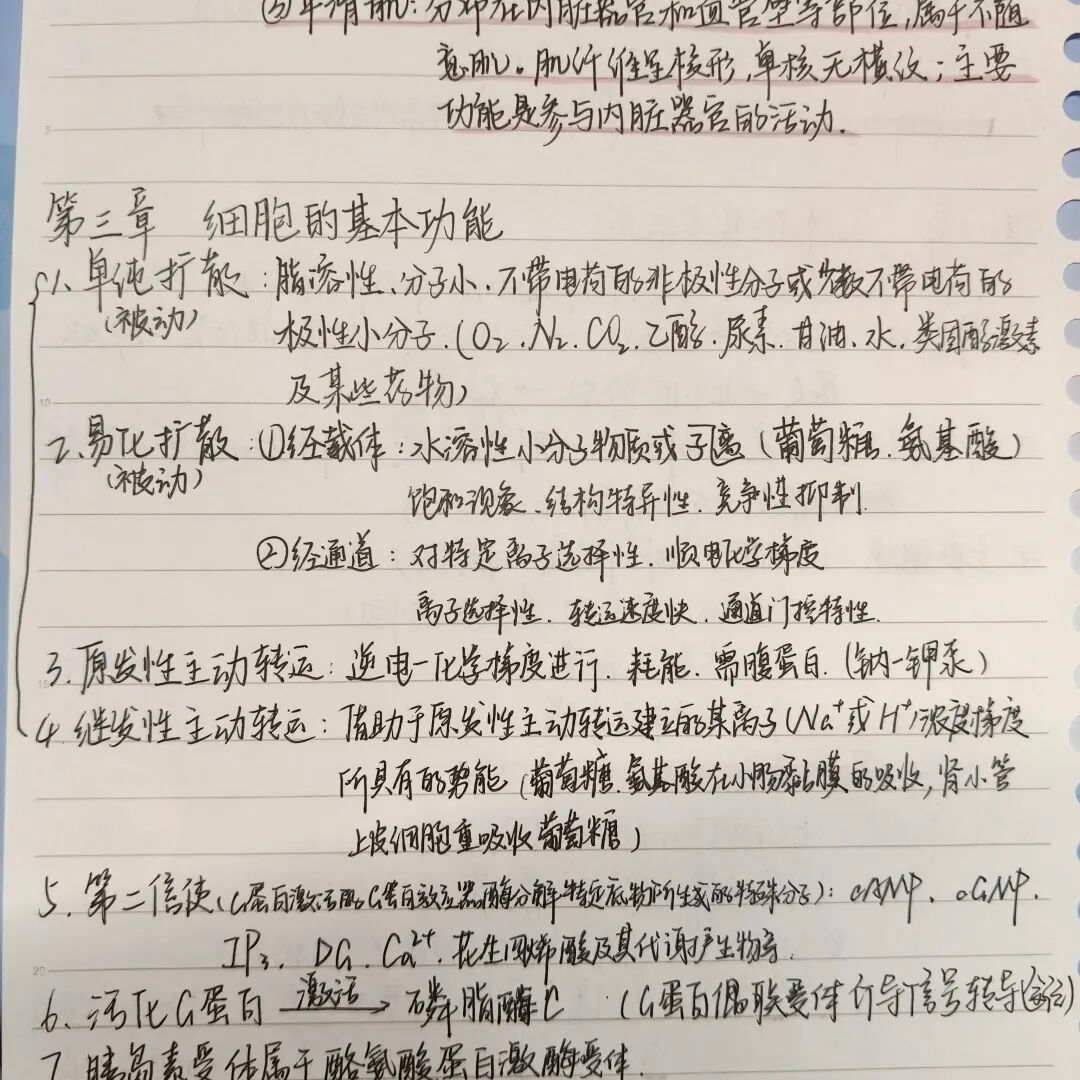 ③平滑肌：分布在内脏器官和血管壁等部位,属于不随
意肌。肌纤维呈梭形,单核无横纹；主要
功能是参与内脏器官的活动.
第三章 细胞的基本功能
1、单纯扩散：脂溶性、分子小、不带电荷的非极性分子或少数不带电荷的
(被动)
极性小分子.(O₂、N₂、CO₂、乙醇、尿素、甘油、水、类固醇激素
及某些药物)
2、易化扩散：①经载体：水溶性小分子物质或子离(葡萄糖、氨基酸)
(被动)
饱和现象、结构特异性、竞争性抑制.
②经通道：对特定离子选择性、顺电化学梯度
离子选择性、转运速度快、通道门控特性.
3、原发性主动转运：逆电-化学梯度进行、耗能、需膜蛋白.(钠-钾泵)
4、继发性主动转运：借助于原发性主动转运建立的某离子(Na⁺或H⁺)浓度梯度
所具有的势能(葡萄糖、氨基酸在小肠黏膜的吸收,肾小管
上皮细胞重吸收葡萄糖)
5、第二信使(G蛋白激活的G蛋白效应器酶分解特定底物所生成的特殊分子)：cAMP、cGMP、
IP₃、DG、Ca²⁺、花生四烯酸及其代谢产生物等.
6、活化G蛋白 激活→ 磷脂酶C (G蛋白偶联受体介导信号转导
7、胰岛素受体属于酪氨酸蛋白激酶受体.